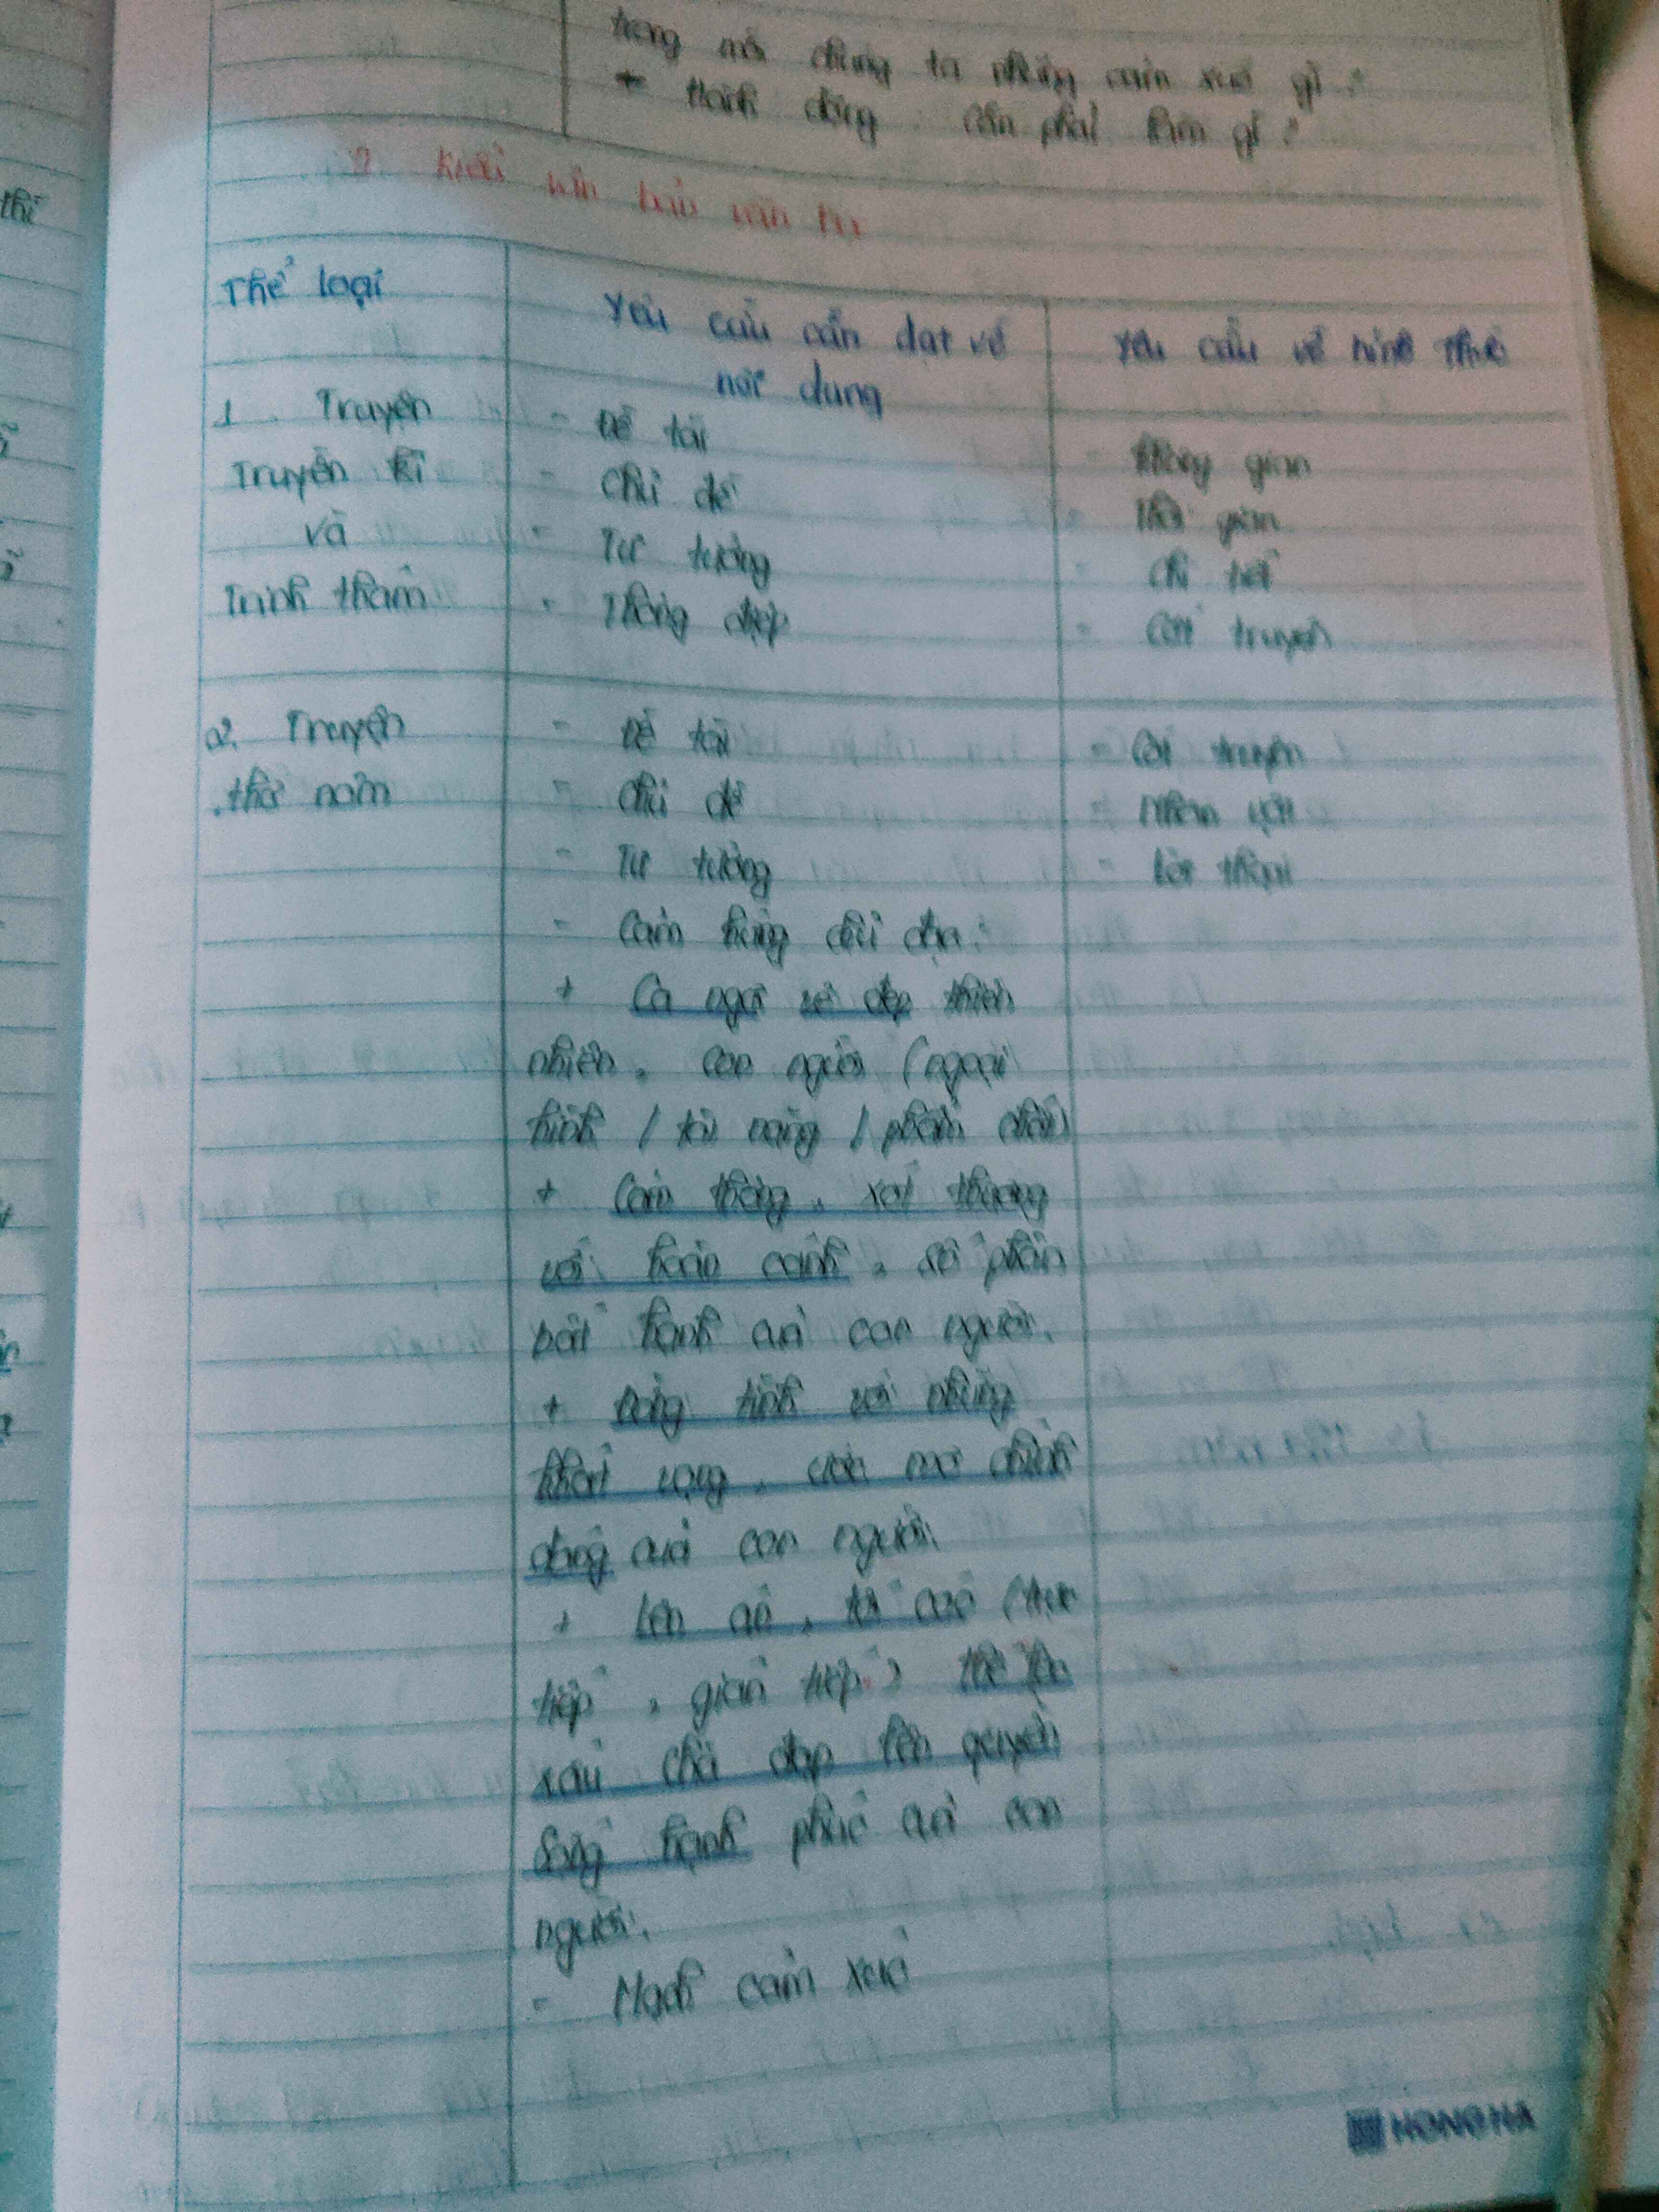 trong mỗi chúng ta những cảm xúc gì ?
+ Hành động : Cần phải làm gì ?
văn bản văn học
Thể loại
Yêu cầu cần đạt về nội dung
Yêu cầu về hình thức
1. Truyện
Truyền kì
và
Trinh thám
- Đề tài
- Chủ đề
- Tư tưởng
- Thông điệp
- Không gian
- Thời gian
- Chi tiết
- Cốt truyện
2. Truyện
thơ nôm
- Đề tài
- Chủ đề
- Tư tưởng
- Cảm hứng chủ đạo :
+ Ca ngợi vẻ đẹp thiên
nhiên, con người (ngoại
hình / tài năng / phẩm chất)
+ Cảm thông, xót thương
với hoàn cảnh, số phận
bất hạnh của con người.
+ Đồng tình với những
khát vọng, ước mơ chính
đáng của con người.
+ Lên án, tố cáo (trực
tiếp, gián tiếp) thế lực
xấu chà đạp lên quyền
sống hạnh phúc của con
người.
- Mạch cảm xúc
- Cốt truyện
- Nhân vật
- Lời thoại
thì
HONG HA